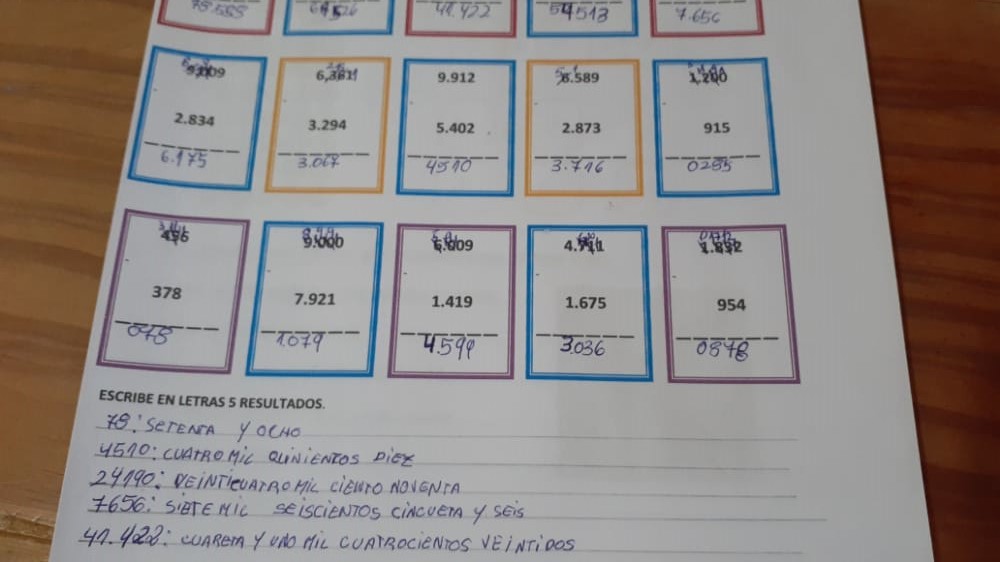 78.588 41.422 54513 7.656
9.009 6.361 9.912 6.589 1.200
2.834 3.294 5.402 2.873 915
6.175 3.067 4510 3.716 0285
456 9.000 6.009 4.711 1.832
378 7.921 1.419 1.675 954
078 1.079 4.590 3.036 0878
ESCRIBE EN LETRAS 5 RESULTADOS.
78: SETENTA Y OCHO
4510: CUATRO MIL QUINIENTOS DIEZ
24190: VEINTICUATRO MIL CIENTO NOVENTA
7656: SIETE MIL SEISCIENTOS CINCUETA Y SEIS
41.422: CUARETA Y UNO MIL CUATROCIENTOS VEINTIDOS